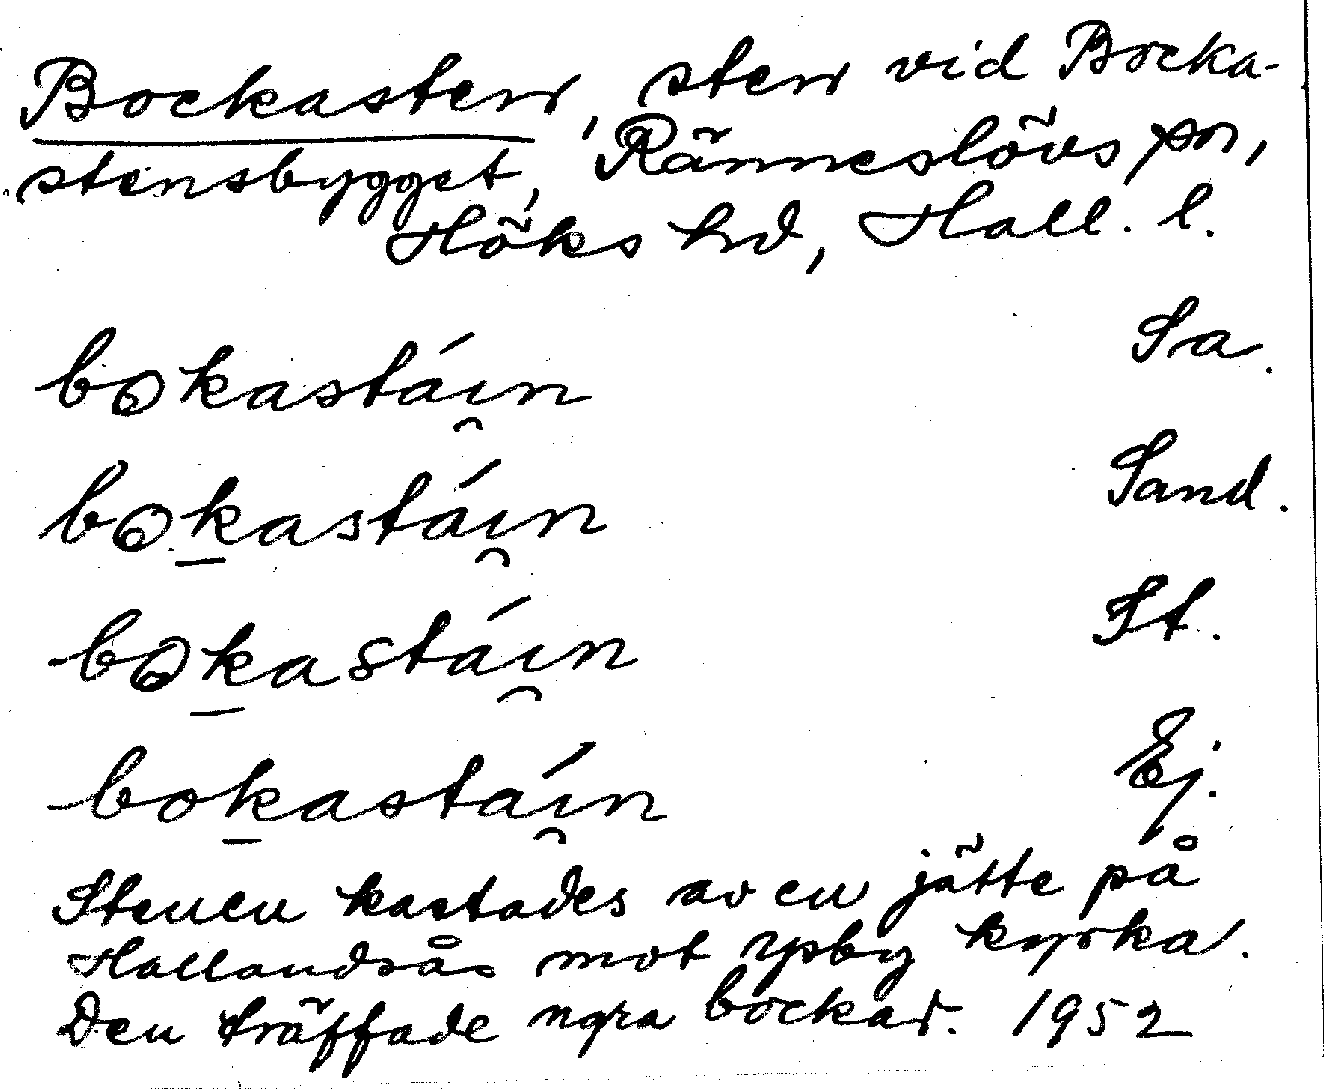 Bockasten, sten vid Bocka-
stensbygget, Ränneslövs sn,
Höks hd, Hall. l.
bokastáı̯n Sa.
bo̱kastáı̯n Sand.
bo̱kastáı̯n St.
bo̱kastáı̯n Ej.
Stenen kastades av en jätte på
Hallandsås mot Ysby kyrka.
Den träffade ngra bockar. 1952